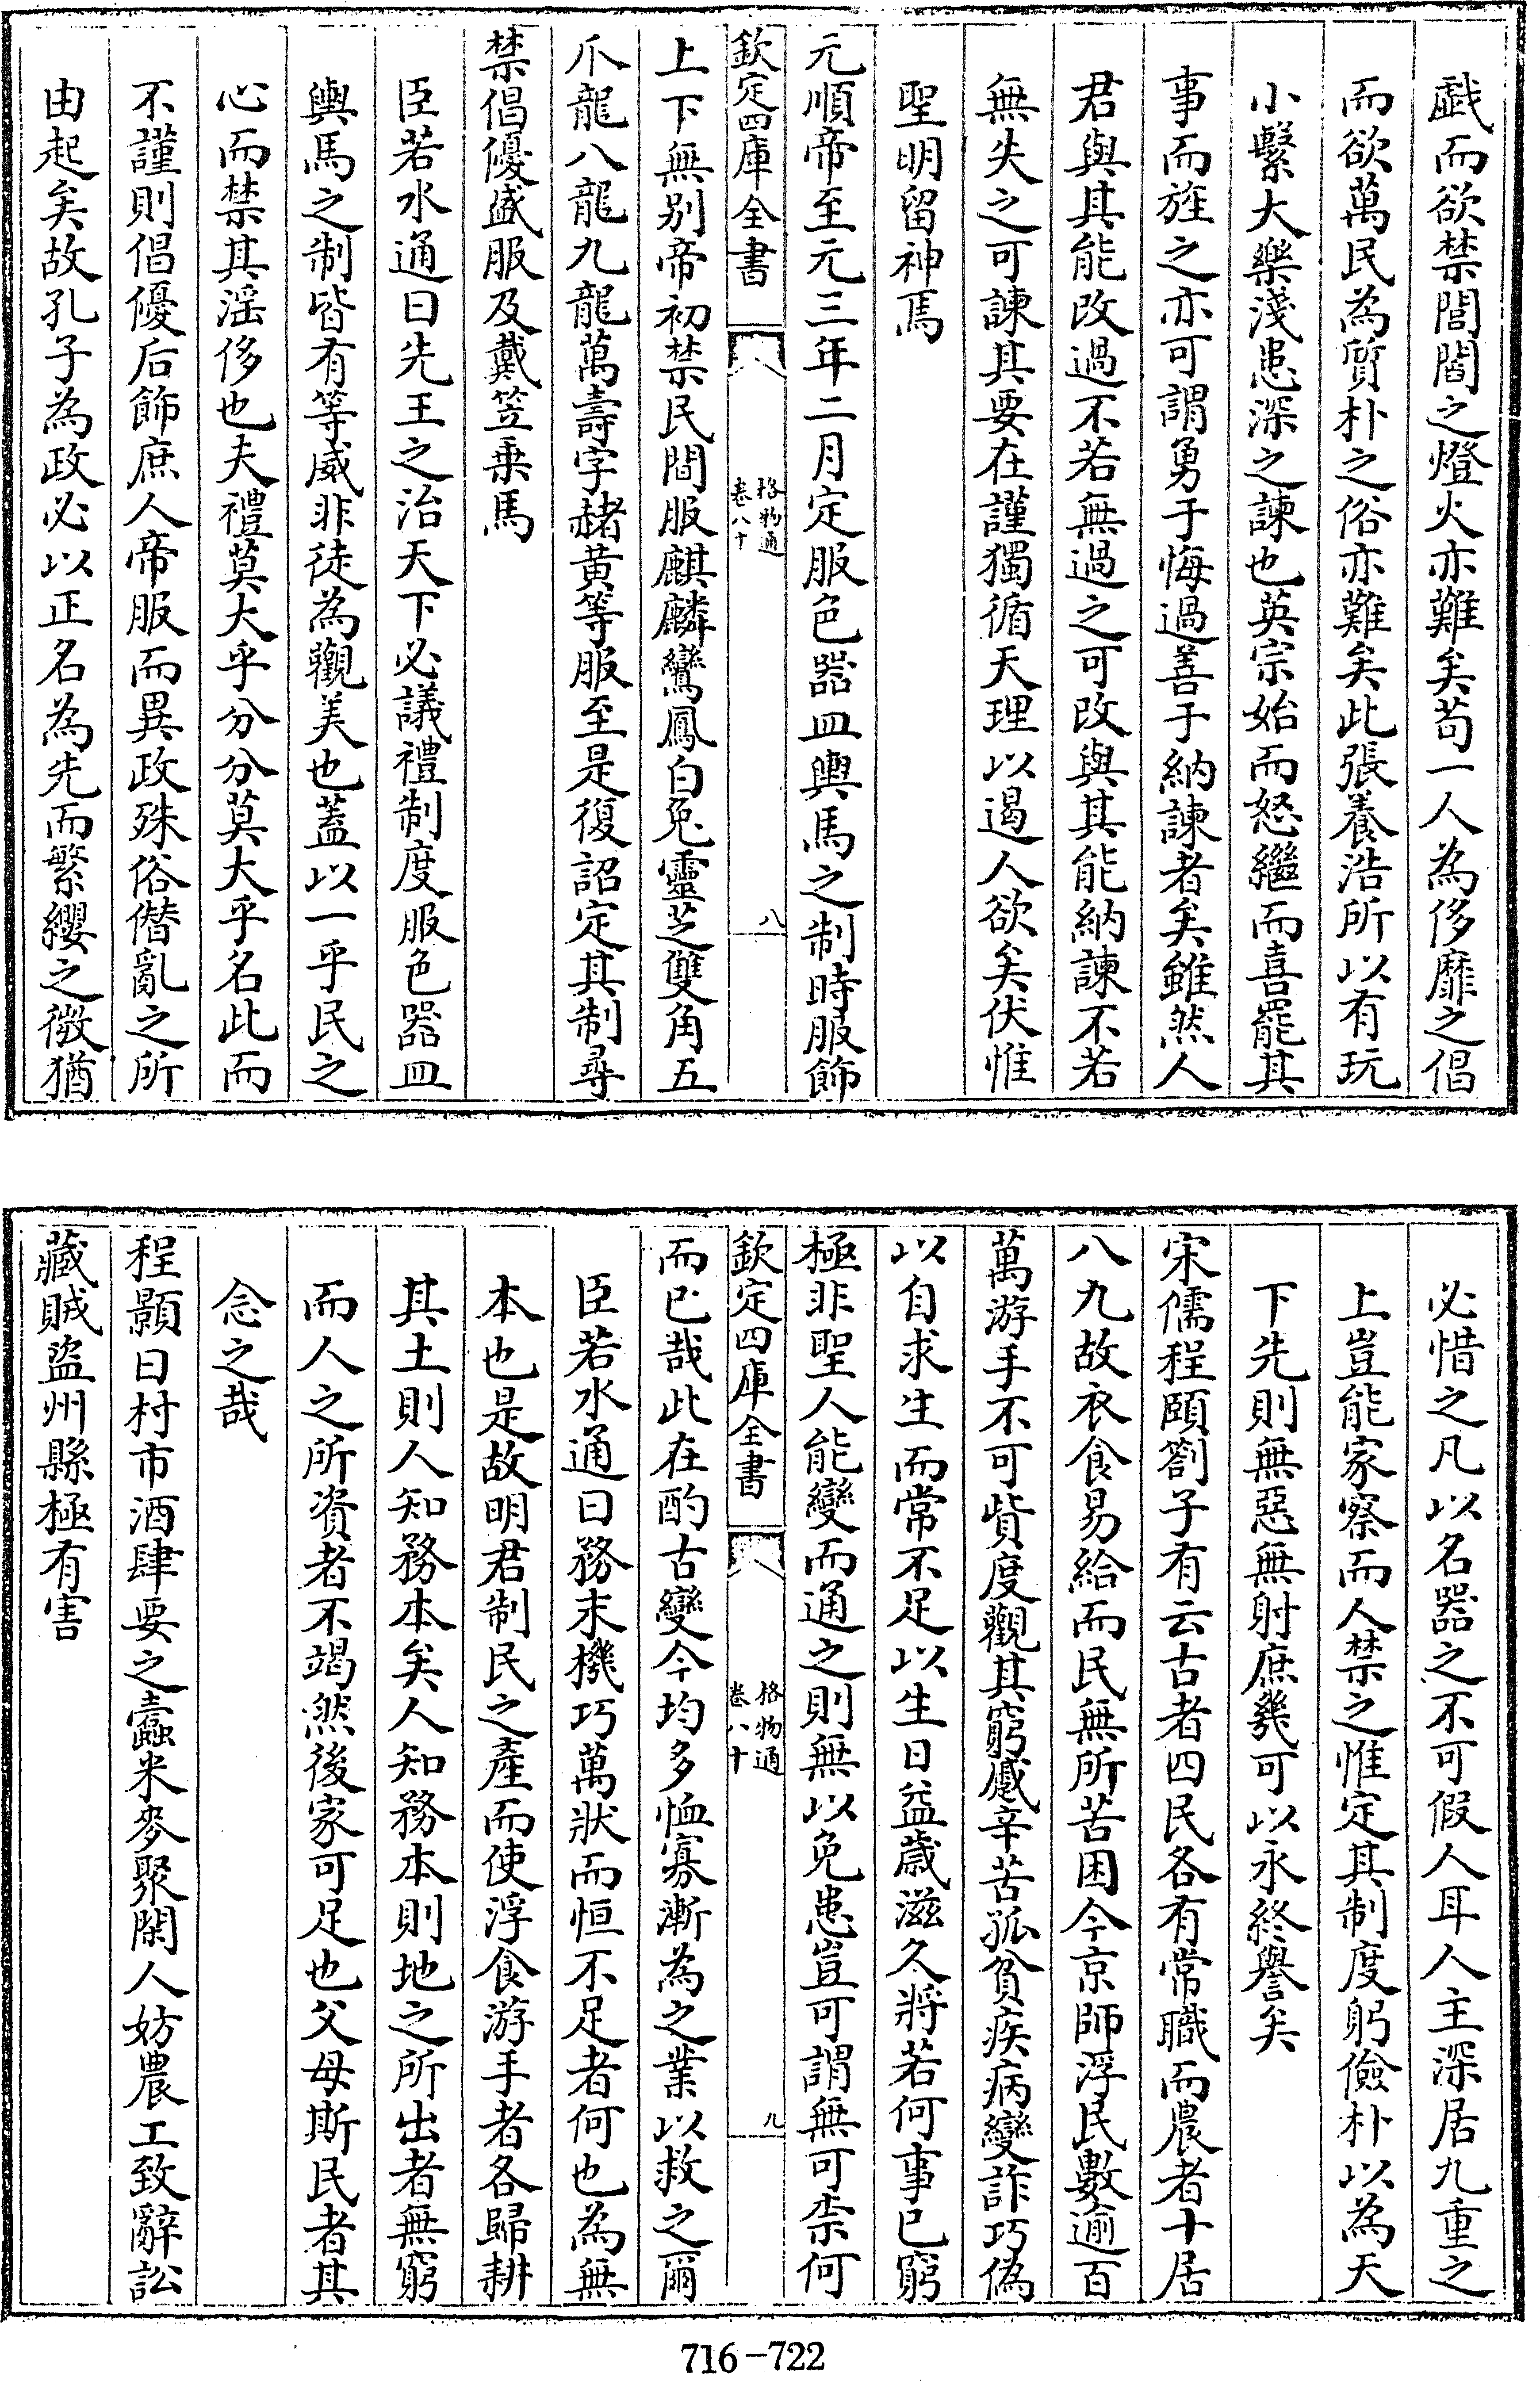 戯而欲禁閭閻之燈火亦難矣苟一人為侈靡之倡
而欲萬民為質朴之俗亦難矣此張養浩所以有玩
小繫大樂淺患深之諫也英宗始而怒繼而喜罷其
事而旌之亦可謂勇于悔過善于納諫者矣雖然人
君與其能改過不若無過之可改與其能納諫不若
無失之可諫其要在謹獨循天理以遏人欲矣伏惟
聖明留神焉
元順帝至元三年二月定服色器皿輿馬之制時服飾
欽定四庫全書
格物通
卷八十
八
上下無別帝初禁民間服麒麟鸞鳳白兎靈芝雙角五
爪龍八龍九龍萬壽字赭黄等服至是復詔定其制尋
禁倡優盛服及戴笠乗馬
臣若水通曰先王之治天下必議禮制度服色器皿
輿馬之制皆有等威非徒為觀美也蓋以一乎民之
心而禁其淫侈也夫禮莫大乎分分莫大乎名此而
不謹則倡優后飾庶人帝服而異政殊俗僣亂之所
由起矣故孔子為政必以正名為先而繁纓之微猶
必惜之凡以名器之不可假人耳人主深居九重之
上豈能家察而人禁之惟定其制度躬儉朴以為天
下先則無惡無射庶幾可以永終譽矣
宋儒程頤劄子有云古者四民各有常職而農者十居
八九故衣食易給而民無所苦困今京師浮民數逾百
萬游手不可貲度觀其窮蹙辛苦孤貧疾病變詐巧偽
以自求生而常不足以生日益歲滋久將若何事已窮
極非聖人能變而通之則無以免患豈可謂無可柰何
欽定四庫全書
格物通
卷八十
九
而已哉此在酌古變今均多恤寡漸為之業以救之爾
臣若水通曰務末機巧萬狀而恒不足者何也為無
本也是故明君制民之產而使浮食游手者各歸耕
其土則人知務本矣人知務本則地之所出者無窮
而人之所資者不竭然後家可足也父母斯民者其
念之哉
程顥曰村市酒肆要之蠹米麥聚閑人妨農工致辭訟
藏賊盜州縣極有害
716-722